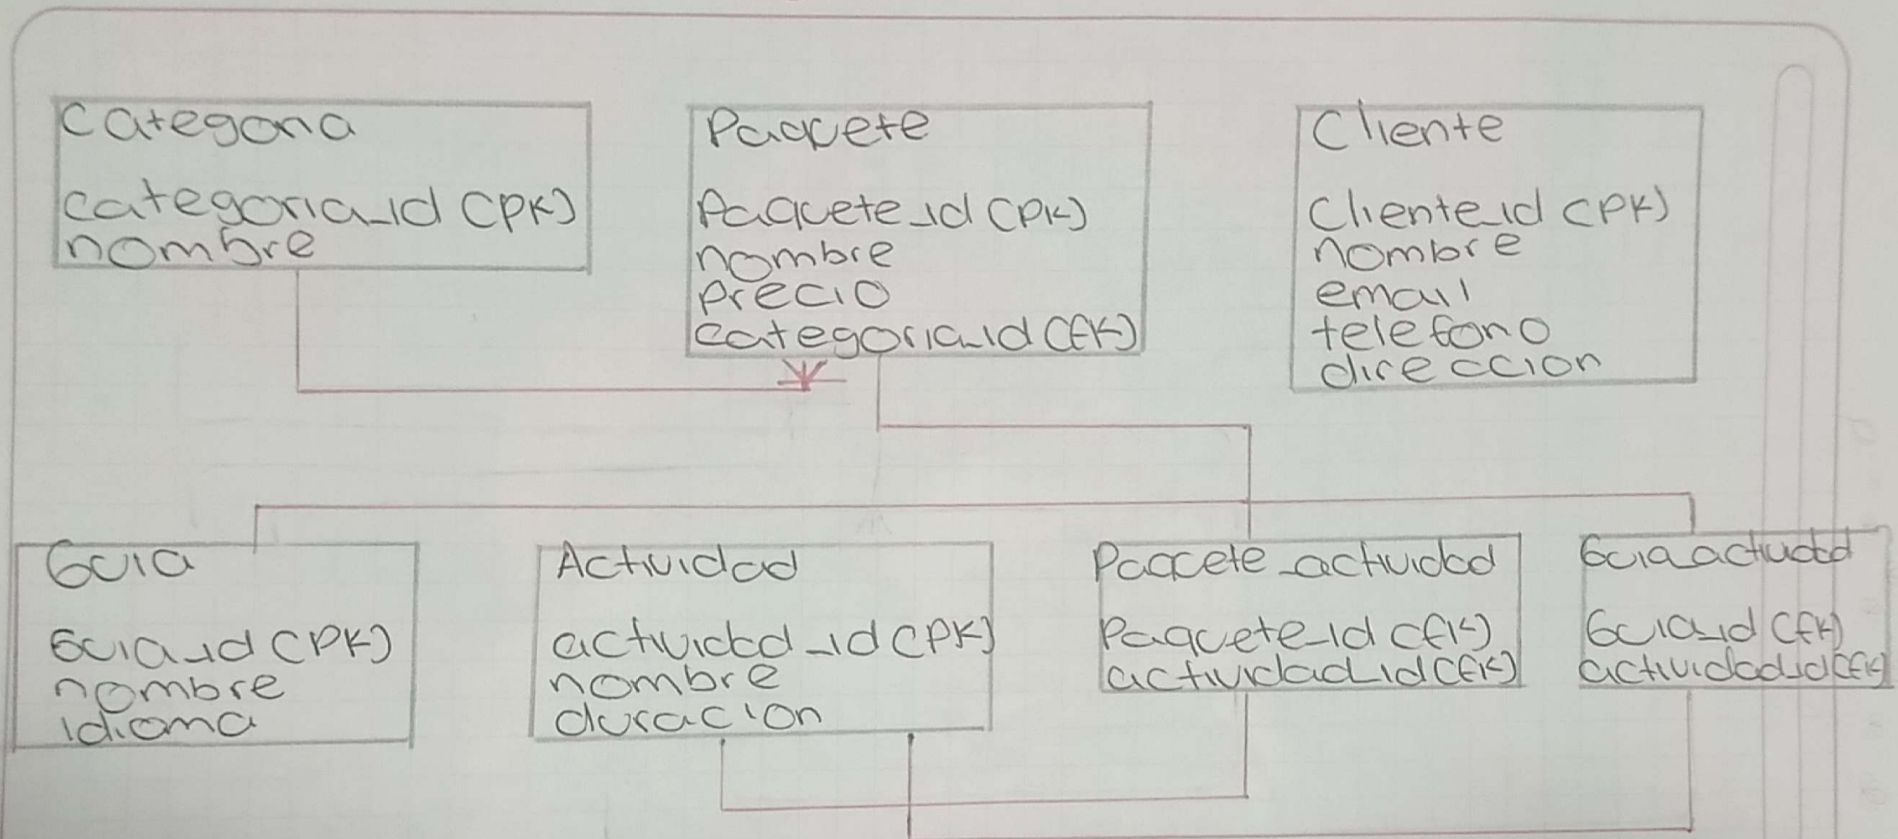 Categoria
categoria_id (PK)
nombre
Paquete
Paquete_id (PK)
nombre
precio
categoria_id (FK)
Cliente
Cliente_id (PK)
nombre
email
telefono
direccion
Guia
Guia_id (PK)
nombre
idioma
Actividad
actividad_id (PK)
nombre
duracion
Paquete_actividad
Paquete_id (FK)
actividad_id (FK)
Guia_actividad
Guia_id (FK)
actividad_id (FK)